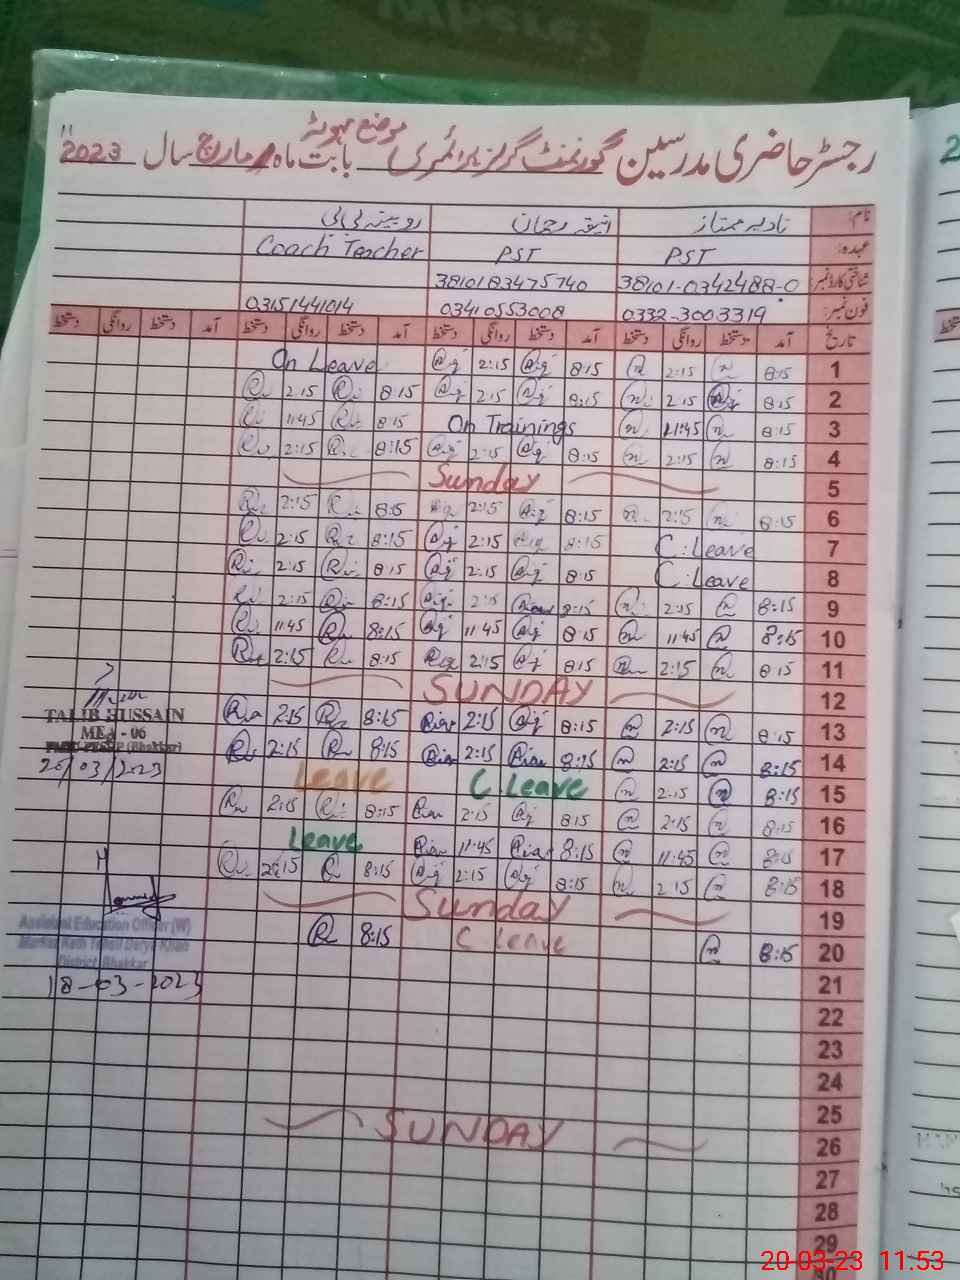 رجسٹر حاضری مدرسین گورنمنٹ گرلز پرائمری موضع بابت ماہ مارچ سال 2023
نام: نادیہ ممتاز انیقہ رحمان روبینہ بی بی
عہدہ: PST PST Coach Teacher
شناختی کارڈ نمبر: 38101-0342488-0 3810183475740
فون نمبر: 0332-3003319 03410553008 03151441014
تاریخ آمد دستخط روانگی دستخط آمد دستخط روانگی دستخط آمد دستخط روانگی دستخط آمد دستخط روانگی دستخط
1 8:15 2:15 8:15 2:15 On Leave
2 8:15 2:15 8:15 2:15 8:15 2:15
3 8:15 11:45 On Trainings 8:15 11:45
4 8:15 2:15 8:15 2:15 8:15 2:15
5 Sunday
6 8:15 2:15 8:15 2:15 8:15 2:15
7 C.Leave 8:15 2:15 8:15 2:15
8 C.Leave 8:15 2:15 8:15 2:15
9 8:15 2:15 8:15 2:15 8:15 2:15
10 8:15 11:45 8:15 11:45 8:15 11:45
11 8:15 2:15 8:15 2:15 8:15 2:15
12 SUNDAY
13 8:15 2:15 8:15 2:15 8:15 2:15
14 8:15 2:15 8:15 2:15 8:15 2:15
15 8:15 2:15 C.Leave Leave
16 8:15 2:15 8:15 2:15 8:15 2:15
17 8:15 11:45 8:15 11:45 Leave
18 8:15 2:15 8:15 2:15 8:15 2:15
19 Sunday
20 8:15 C Leave 8:15
21
22
23
24
25
26 SUNDAY
27
28
29
30
TALIB HUSSAIN
MEA - 06
(Bhakkar)
20/03/2023
Assistant Education Officer (W)
Markaz Tehsil Darya Khan
District Bhakkar
18-03-2023
20-03-23 11.53